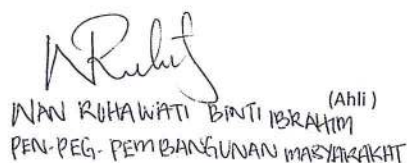 (Ahli)
WAN ROHAWATI BINTI IBRAHIM
PEN-PEG. PEMBANGUNAN MASYARAKAT